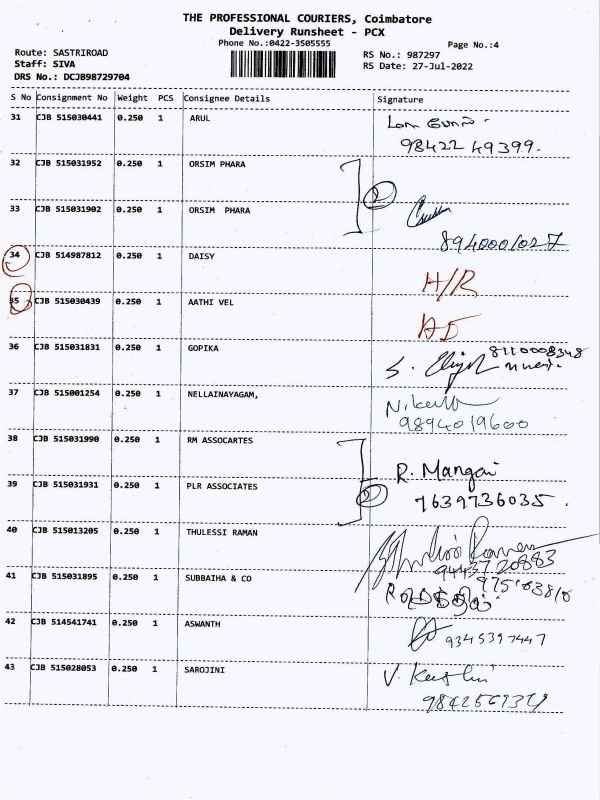 THE PROFESSIONAL COURIERS, Coimbatore
Delivery Runsheet - PCX
Phone No.:0422-3505555
Page No.:4
Route: SASTRIROAD
RS No.: 987297
Staff: SIVA
RS Date: 27-Jul-2022
DRS No.: DCJB98729704
S No Consignment No Weight PCS Consignee Details Signature
31 CJB 515030441 0.250 1 ARUL
98422 49399.
32 CJB 515031952 0.250 1 ORSIM PHARA
2
33 CJB 515031902 0.250 1 ORSIM PHARA
8940001027
34 CJB 514987812 0.250 1 DAISY H/R
35 CJB 515030439 0.250 1 AATHI VEL
36 CJB 515031831 0.250 1 GOPIKA 8110008348
S.
37 CJB 515001254 0.250 1 NELLAINAYAGAM,
9894019600
38 CJB 515031990 0.250 1 RM ASSOCARTES
R. Mangai
39 CJB 515031931 0.250 1 PLR ASSOCIATES 2 7639736035.
40 CJB 515013205 0.250 1 THULESSI RAMAN
9443720883
41 CJB 515031895 0.250 1 SUBBAIHA & CO
42 CJB 514541741 0.250 1 ASWANTH 9345397447
43 CJB 515028053 0.250 1 SAROJINI V.